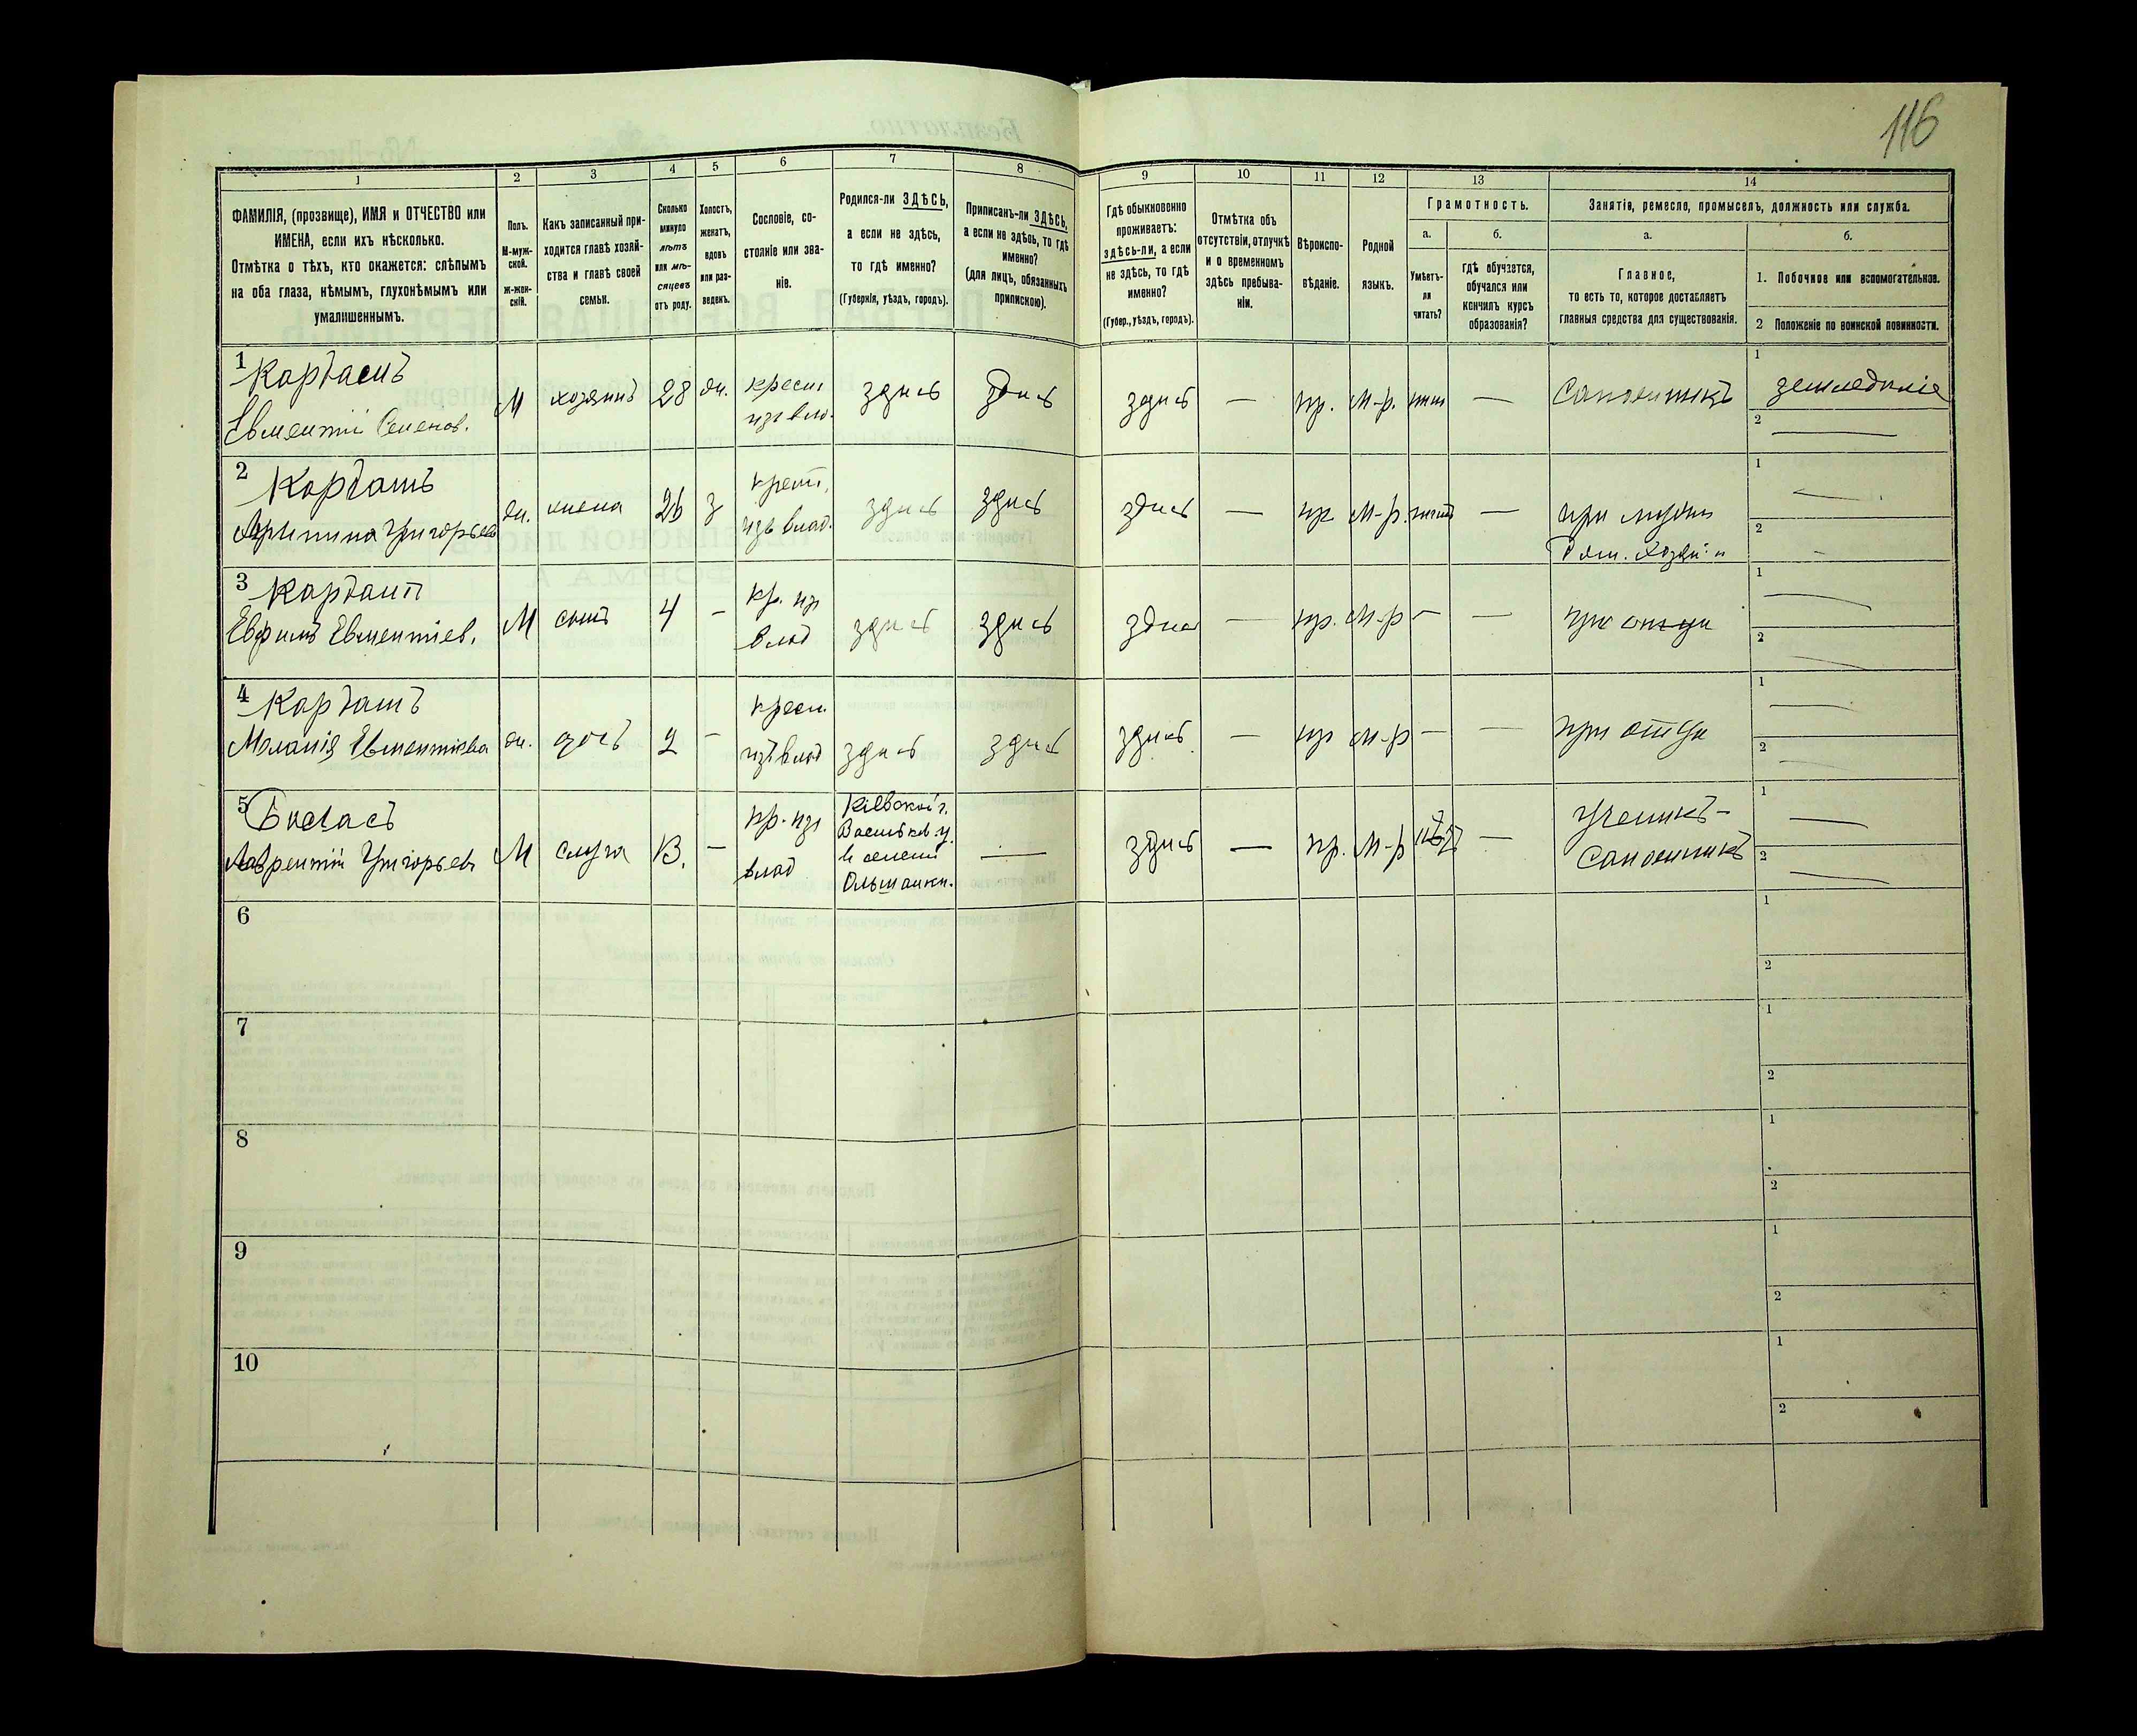 116
1 2 3 4 5 6 7 8 9 10 11 12 13 14
ФАМИЛІЯ, (прозвище), ИМЯ и ОТЧЕСТВО или
ИМЕНА, если ихъ нѣсколько.
Отмѣтка о тѣхъ, кто окажется: слѣпымъ
на оба глаза, нѣмымъ, глухонѣмымъ или
умалишеннымъ.
Полъ.
М-муж-
ской.
ж-жен-
скій.
Какъ записанный при-
ходится главѣ хозяй-
ства и главѣ своей
семьи.
Сколько
минуло
лѣтъ
или мѣ-
сяцевъ
отъ роду.
Холостъ,
женатъ,
вдовъ
или раз-
веденъ.
Сословіе, со-
стояніе или зва-
ніе.
Родился-ли ЗДѢСЬ,
а если не здѣсь,
то гдѣ именно?
(Губернія, уѣздъ, городъ).
Приписанъ-ли ЗДѢСЬ,
а если не здѣсь, то гдѣ
именно?
(для лицъ, обязанныхъ
припискою).
Гдѣ обыкновенно
проживаетъ:
здѣсь-ли, а если
не здѣсь, то гдѣ
именно?
(Губер., уѣздъ, городъ).
Отмѣтка объ
отсутствіи, отлучкѣ
и о временномъ
здѣсь пребыва-
ніи.
Вѣроиспо-
вѣданіе.
Родной
языкъ.
Грамотность.
а.
Умѣетъ-
ли
читать?
б.
гдѣ обучается,
обучался или
кончилъ курсъ
образованія?
Занятіе, ремесло, промыселъ, должность или служба.
а.
Главное,
то есть то, которое доставляетъ
главныя средства для существованія.
б.
1. Побочное или вспомогательное.
2 Положеніе по воинской повинности.
1 Кардашъ
Евментій Семенов.
М хозяинъ 28 жн. крест. изъ влад. здѣсь здѣсь здѣсь — пр. М-р. — Сапожникъ
1 земледѣліе
2 —
2 Кардашъ
Григорьева
ж. жена з крест. изъ влад. здѣсь здѣсь здѣсь — пр М-р. — при мужѣ
дом. хозяй.
1 —
2 —
3 Кардашъ
Евфимъ Евментіев.
М сынъ 4 — кр. изъ влад здѣсь здѣсь здѣсь — пр. М-р — — при отцѣ
1 —
2 —
4 Кардашъ
Маланія Евментіева
ж. дочь 2 — крест. изъ влад здѣсь здѣсь здѣсь — пр М-р — — при отцѣ
1 —
2 —
5
Лаврентій Григорьев
М слуга 13. — кр. изъ влад
Кіевской г.
Васильков. у.
в селеніи
Ольшанки.
— здѣсь — пр. М-р нѣтъ — Ученикъ-
Сапожникъ
1 —
2 —
6 1 2
7 1 2
8 1 2
9 1 2
10 1 2